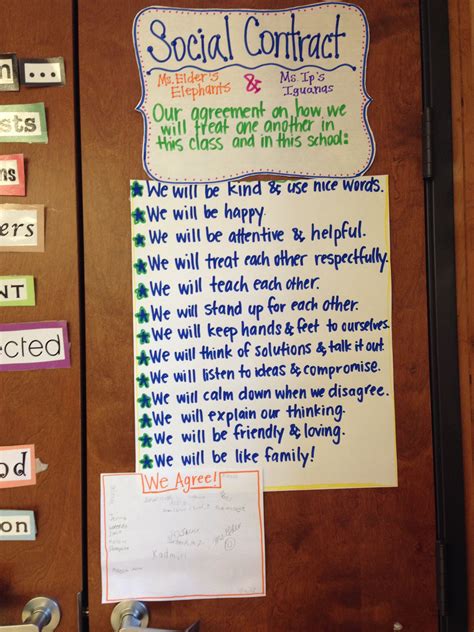 Social Contract
Ms. Elder's Elephants & Ms. Ip's Iguanas
Our agreement on how we
will treat one another in
this class and in this school:
We will be kind & use nice words.
We will be happy.
We will be attentive & helpful.
We will treat each other respectfully.
We will teach each other.
We will stand up for each other.
We will keep hands & feet to ourselves.
We will think of solutions & talk it out.
We will listen to ideas & compromise.
We will calm down when we disagree.
We will explain our thinking.
We will be friendly & loving.
We will be like family!
We Agree!
...
sts
ns
ers
NT
ected
od
on